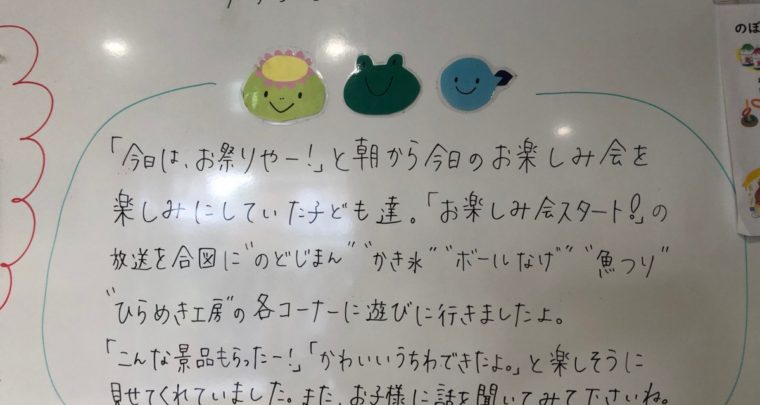 「今日は、お祭りやー!」と朝から今日のお楽しみ会を
楽しみにしていた子ども達。「お楽しみ会スタート!」の
放送を合図に"のどじまん" "かき氷" "ボールなげ" "魚つり"
"ひらめき工房"の各コーナーに遊びに行きましたよ。
「こんな景品もらったー!」「かわいいうちわできたよ。」と楽しそうに
見せてくれていました。また、お子様に話を聞いてみて下さいね。
のぼ